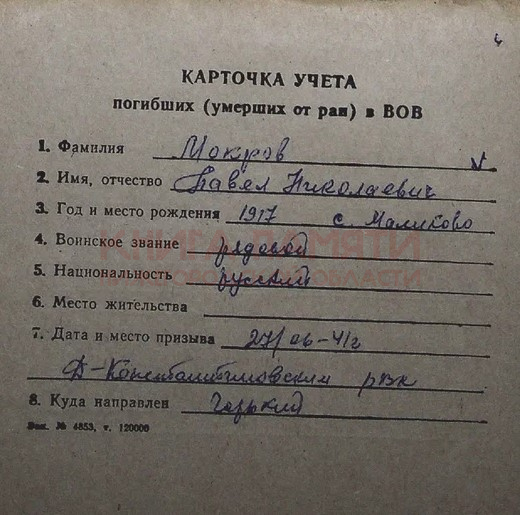 4
КАРТОЧКА УЧЕТА
погибших (умерших от ран) в ВОВ
1. Фамилия Мокров V
2. Имя, отчество Павел Николаевич
3. Год и место рождения 1917 с. Маликово
4. Воинское звание рядовой
5. Национальность русский
6. Место жительства
7. Дата и место призыва 27/06-41г
Д-Константиновским рвк
8. Куда направлен Горький
Зак. № 4853, т. 120000
КНИГА ПАМЯТИ